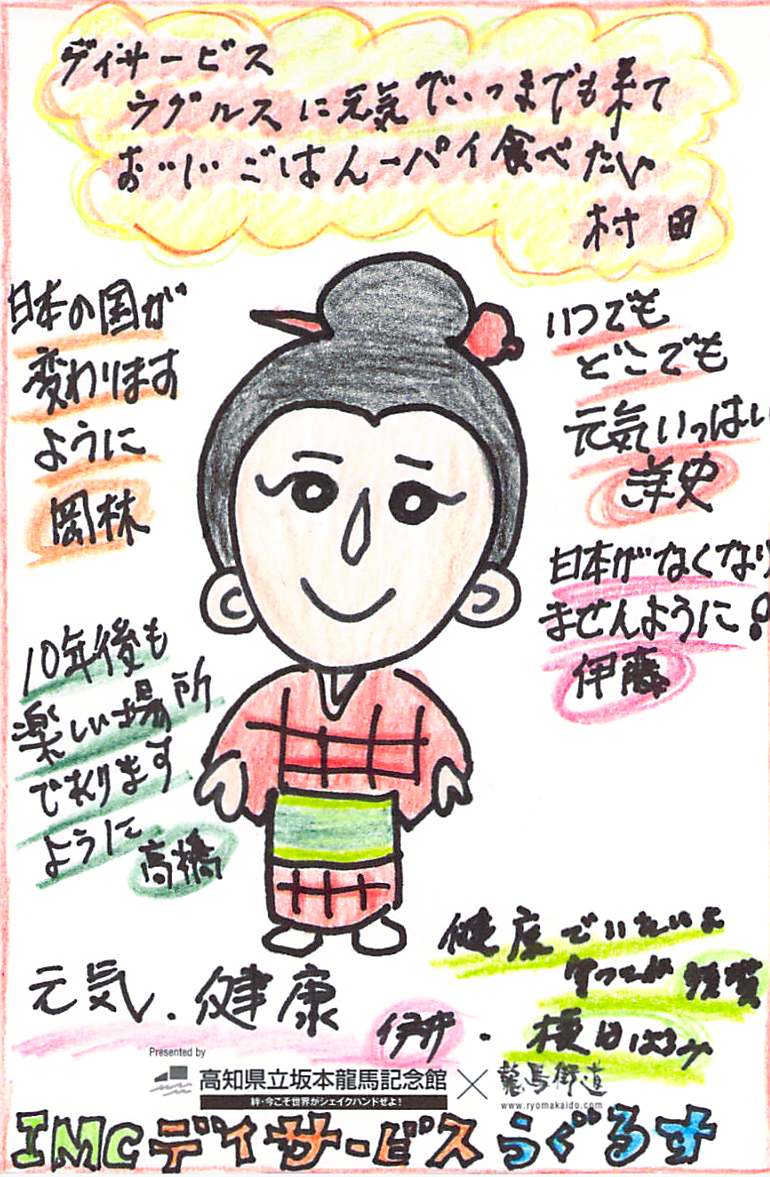 デイサービス
ウグルスに元気でいつまでも来て
おいしいごはん一パイ食べたい
村田
日本の国が
変わります
ように
岡林
いつでも
どこでも
元気いっぱい
洋史
日本がなくなり
ませんように!
伊藤
10年後も
楽しい場所
で有ります
ように
高橋
健康でいたいよ
元気、健康
伊井
Presented by
高知県立坂本龍馬記念館
絆・今こそ世界がシェイクハンドぜよ!
×
龍馬街道
www.ryomakaido.com
IMCデイサービスうぐるす